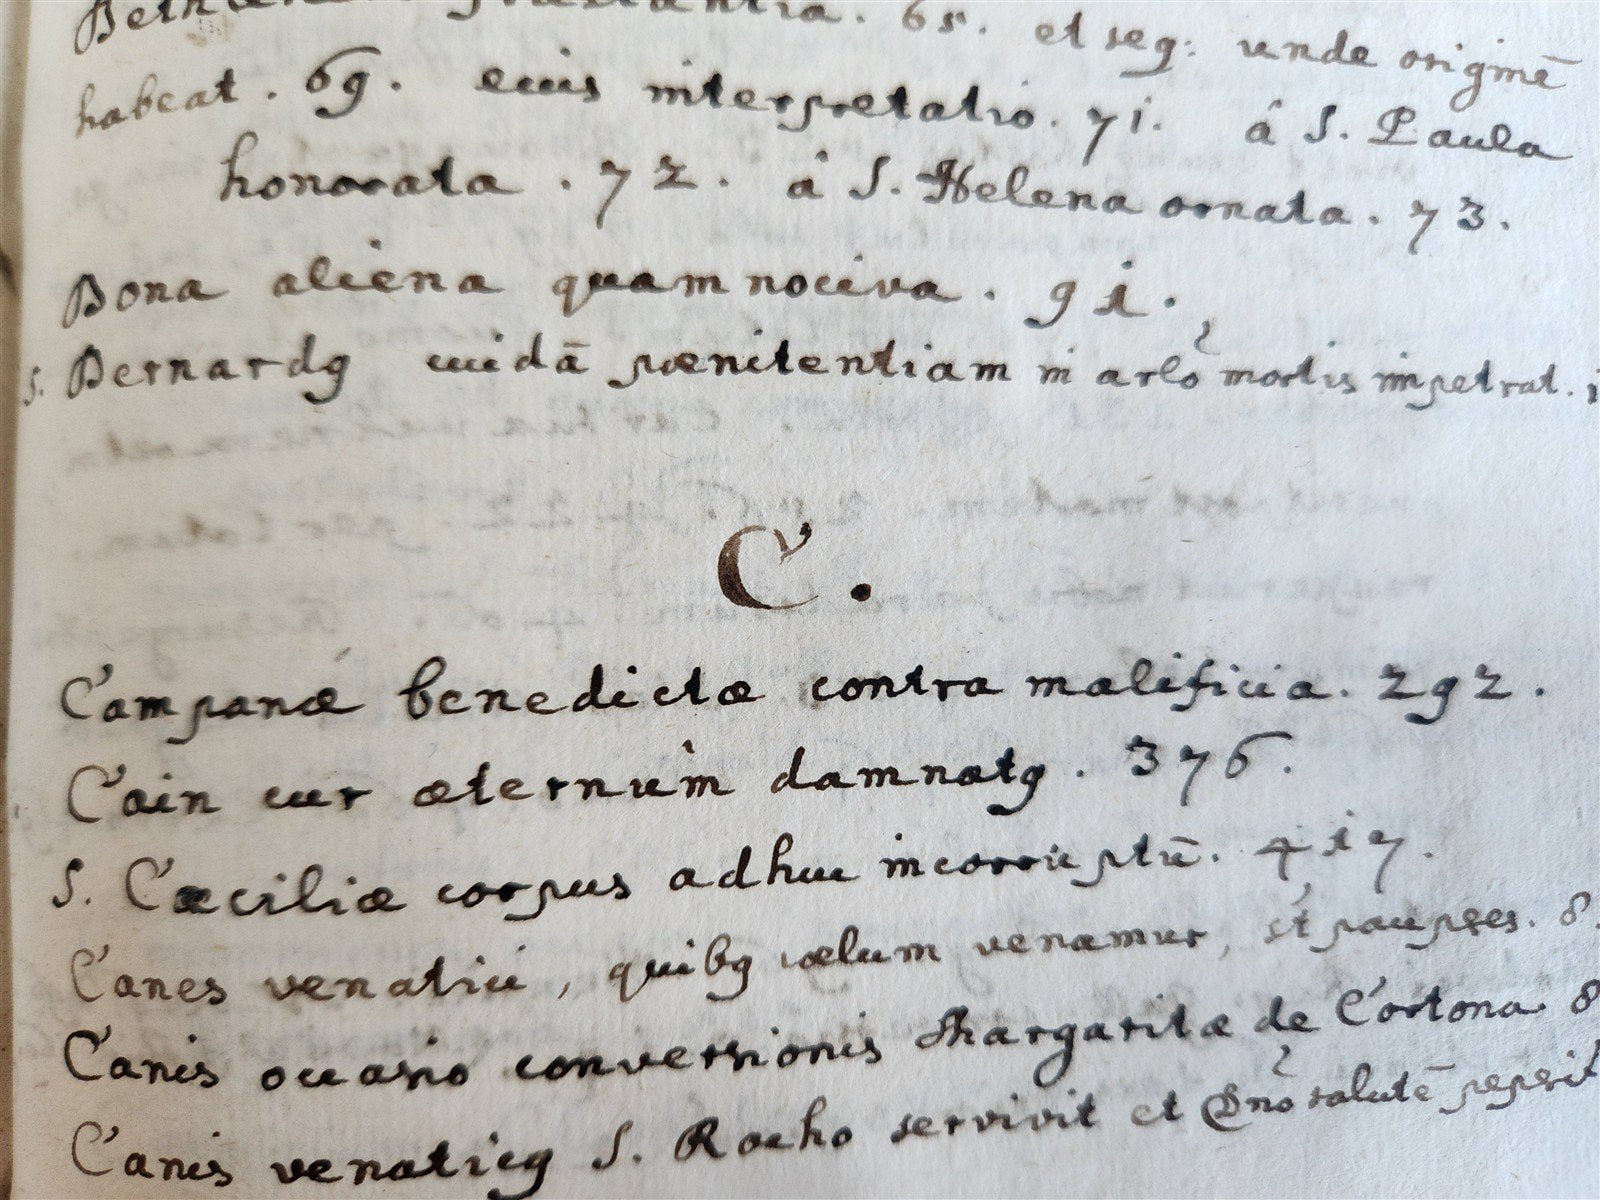 præstantia. 65. et seq: unde originē
habeat. 69. eius interpretatio. 71. â S. Paula
honorata. 72. â S. Helena ornata. 73.
Bona aliena quam nociva. 91.
S. Bernardꝯ cuidā pœnitentiam in arlo mortis impetrat.
C.
Campanæ benedictæ contra malificia. 292.
Cain cur æternùm damnatꝯ. 376.
S. Cæciliæ corpus adhuc incorruptū. 417.
Canes venatici, quibꝯ cœlum venamur, st paupres. 8
Canis occasio conversionis Margaritæ de Cortona. 8
Canis venaticꝯ S. Rocho servivit et salutē peperit